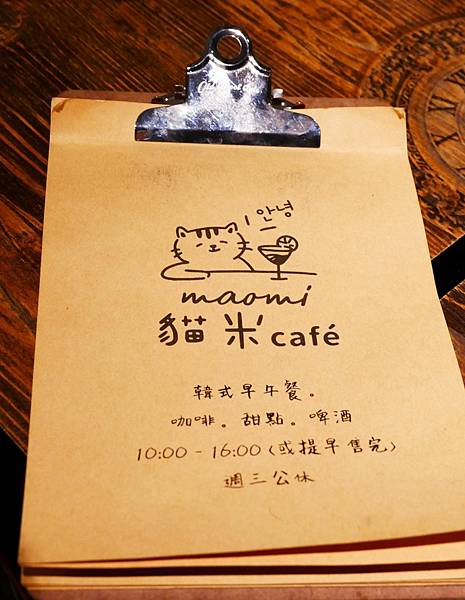 안녕
maomi
貓米 café
韓式早午餐。
咖啡。甜點。啤酒
10:00 - 16:00 (或提早售完)
週三公休